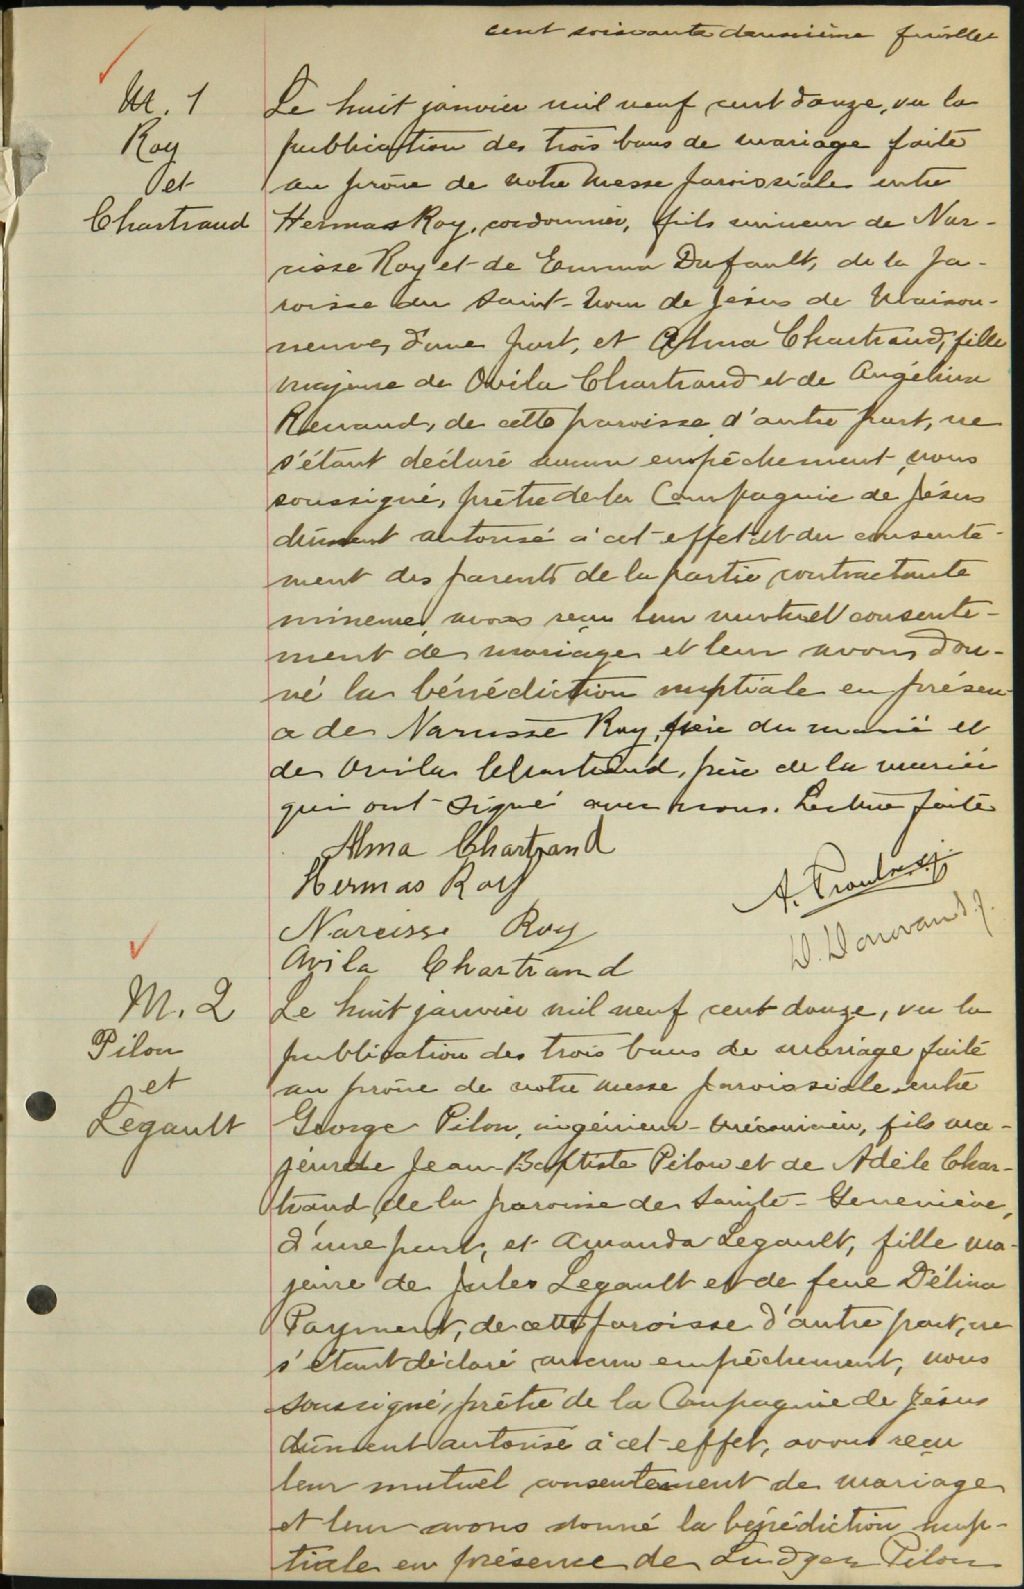 cent soixante deuxième feuillet
M. 1
Roy
et
Chartrand
Le huit janvier mil neuf cent douze, vu la
publication des trois bans de mariage faite
au prône de notre messe paroissiale entre
Hermas Roy, cordonnier, fils mineur de Nar-
cisse Roy et de Emma Dufault, de la pa-
roisse du Saint-Nom de Jésus de Maison-
neuve, d'une part, et Alma Chartrand, fille
majeure de Ovila Chartrand et de Angélina
Renaud, de cette paroisse d'autre part, ne
s'étant déclaré aucun empêchement, nous
soussigné, prêtre de la Compagnie de Jésus
dûment autorisé à cet effet et du consente-
ment des parents de la partie contractante
mineure, avons reçu leur mutuel consente-
ment de mariage et leur avons don-
né la bénédiction nuptiale en présen-
ce de Narcisse Roy, père du marié et
de Ovila Chartrand, père de la mariée
qui ont signé avec nous. Lecture faite
Alma Chartrand
Hermas Roy
A. Proulx s.j.
Narcisse Roy
D. Donovan s.j.
Avila Chartrand
M. 2
Pilon
et
Legault
Le huit janvier mil neuf cent douze, vu la
publication des trois bans de mariage faite
au prône de notre messe paroissiale entre
George Pilon, ingénieur-mécanicien, fils ma-
jeur de Jean-Baptiste Pilon et de Adèle Char-
trand, de la paroisse de Sainte-Geneviève,
d'une part, et Amanda Legault, fille ma-
jeure de Jules Legault et de feue Délina
Payment, de cette paroisse d'autre part, ne
s'étant déclaré aucun empêchement, nous
soussigné, prêtre de la Compagnie de Jésus
dûment autorisé à cet effet, avons reçu
leur mutuel consentement de mariage
et leur avons donné la bénédiction nup-
tiale en présence de Ludger Pilon